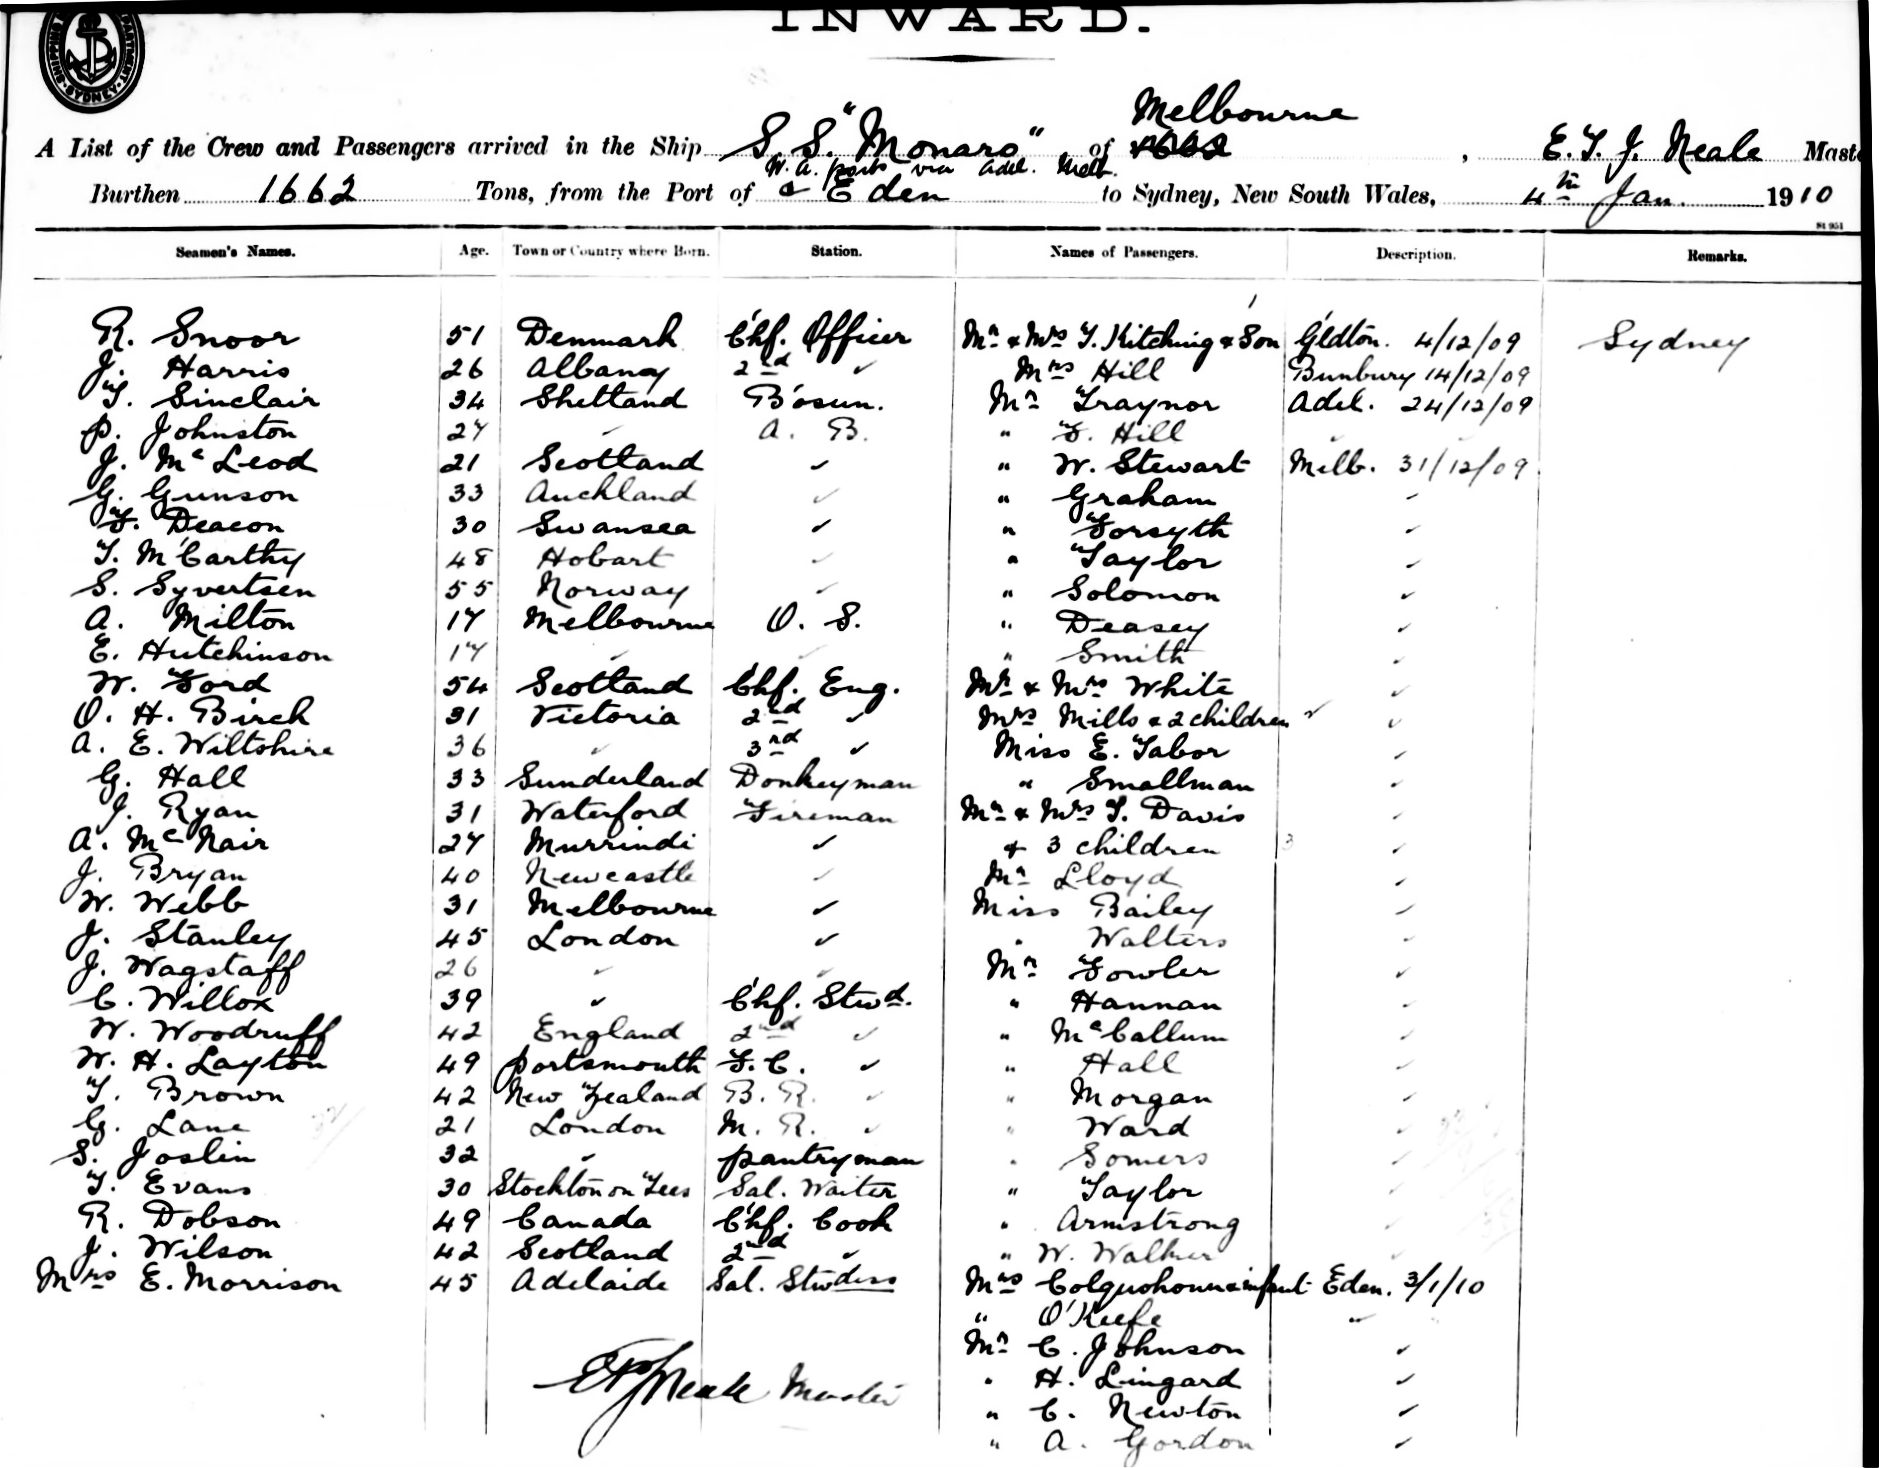 INWARD.
SHIPPING DEPARTMENT SYDNEY
Melbourne
A List of the Crew and Passengers arrived in the Ship S.S. "Monaro" of 1662, E. T. J. Neale Maste
W. A. ports via Adel. Melb.
Burthen 1662 Tons, from the Port of & Eden to Sydney, New South Wales, 4th Jan. 1910
St 951
Seamen's Names. Age. Town or Country where Born. Station. Names of Passengers. Description. Remarks.
R. Snoor 51 Denmark Chf. Officer Mr & Mrs T. Kitching & Son 1 Gldton. 4/12/09 Sydney
J. Harris 26 Albany 2nd " Mrs Hill Bunbury 14/12/09
T. Sinclair 34 Shetland Bosun. Mr Traynor Adel. 24/12/09
P. Johnston 27 " A. B. " F. Hill "
J. McLeod 21 Scotland " " W. Stewart Melb. 31/12/09
G. Gunson 33 Auckland " " Graham "
F. Deacon 30 Swansea " " Forsyth "
T. McCarthy 48 Hobart " " Taylor "
S. Syvertsen 55 Norway " " Solomon "
A. Milton 17 Melbourne O. S. " Deasey "
E. Hutchinson 17 " " " Smith "
W. Ford 54 Scotland Chf. Eng. Mr & Mrs White "
O. H. Birch 31 Victoria 2nd " Mrs Mills & 2 children "
A. E. Wiltshire 36 " 3rd " Miss E. Tabor "
G. Hall 33 Sunderland Donkeyman " Smallman "
J. Ryan 31 Waterford Fireman Mr & Mrs T. Davis "
A. McNair 27 Murrindi " & 3 children 3 "
J. Bryan 40 Newcastle " Mr Lloyd "
W. Webb 31 Melbourne " Miss Bailey "
J. Stanley 45 London " " Walters "
J. Wagstaff 26 " " Mr Fowler "
C. Willox 39 " Chf. Stwd. " Hannan "
W. Woodruff 42 England 2nd " " McCallum "
W. H. Layton 49 Portsmouth F. C. " " Hall "
T. Brown 42 New Zealand B. R. " " Morgan "
G. Lane 21 London M. R. " " Ward "
S. Joslin 32 " Pantryman " Somers "
T. Evans 30 Stockton on Tees Sal. Waiter " Taylor "
R. Dobson 49 Canada Chf. Cook " Armstrong "
J. Wilson 42 Scotland 2nd " " W. Walker "
Mrs E. Morrison 45 Adelaide Sal. Stwdess Mrs Colquohoun & infant Eden. 3/1/10
" O'Keefe "
Mr C. Johnson "
E T J Neale Master " H. Lingard "
" C. Newton "
" A. Gordon "